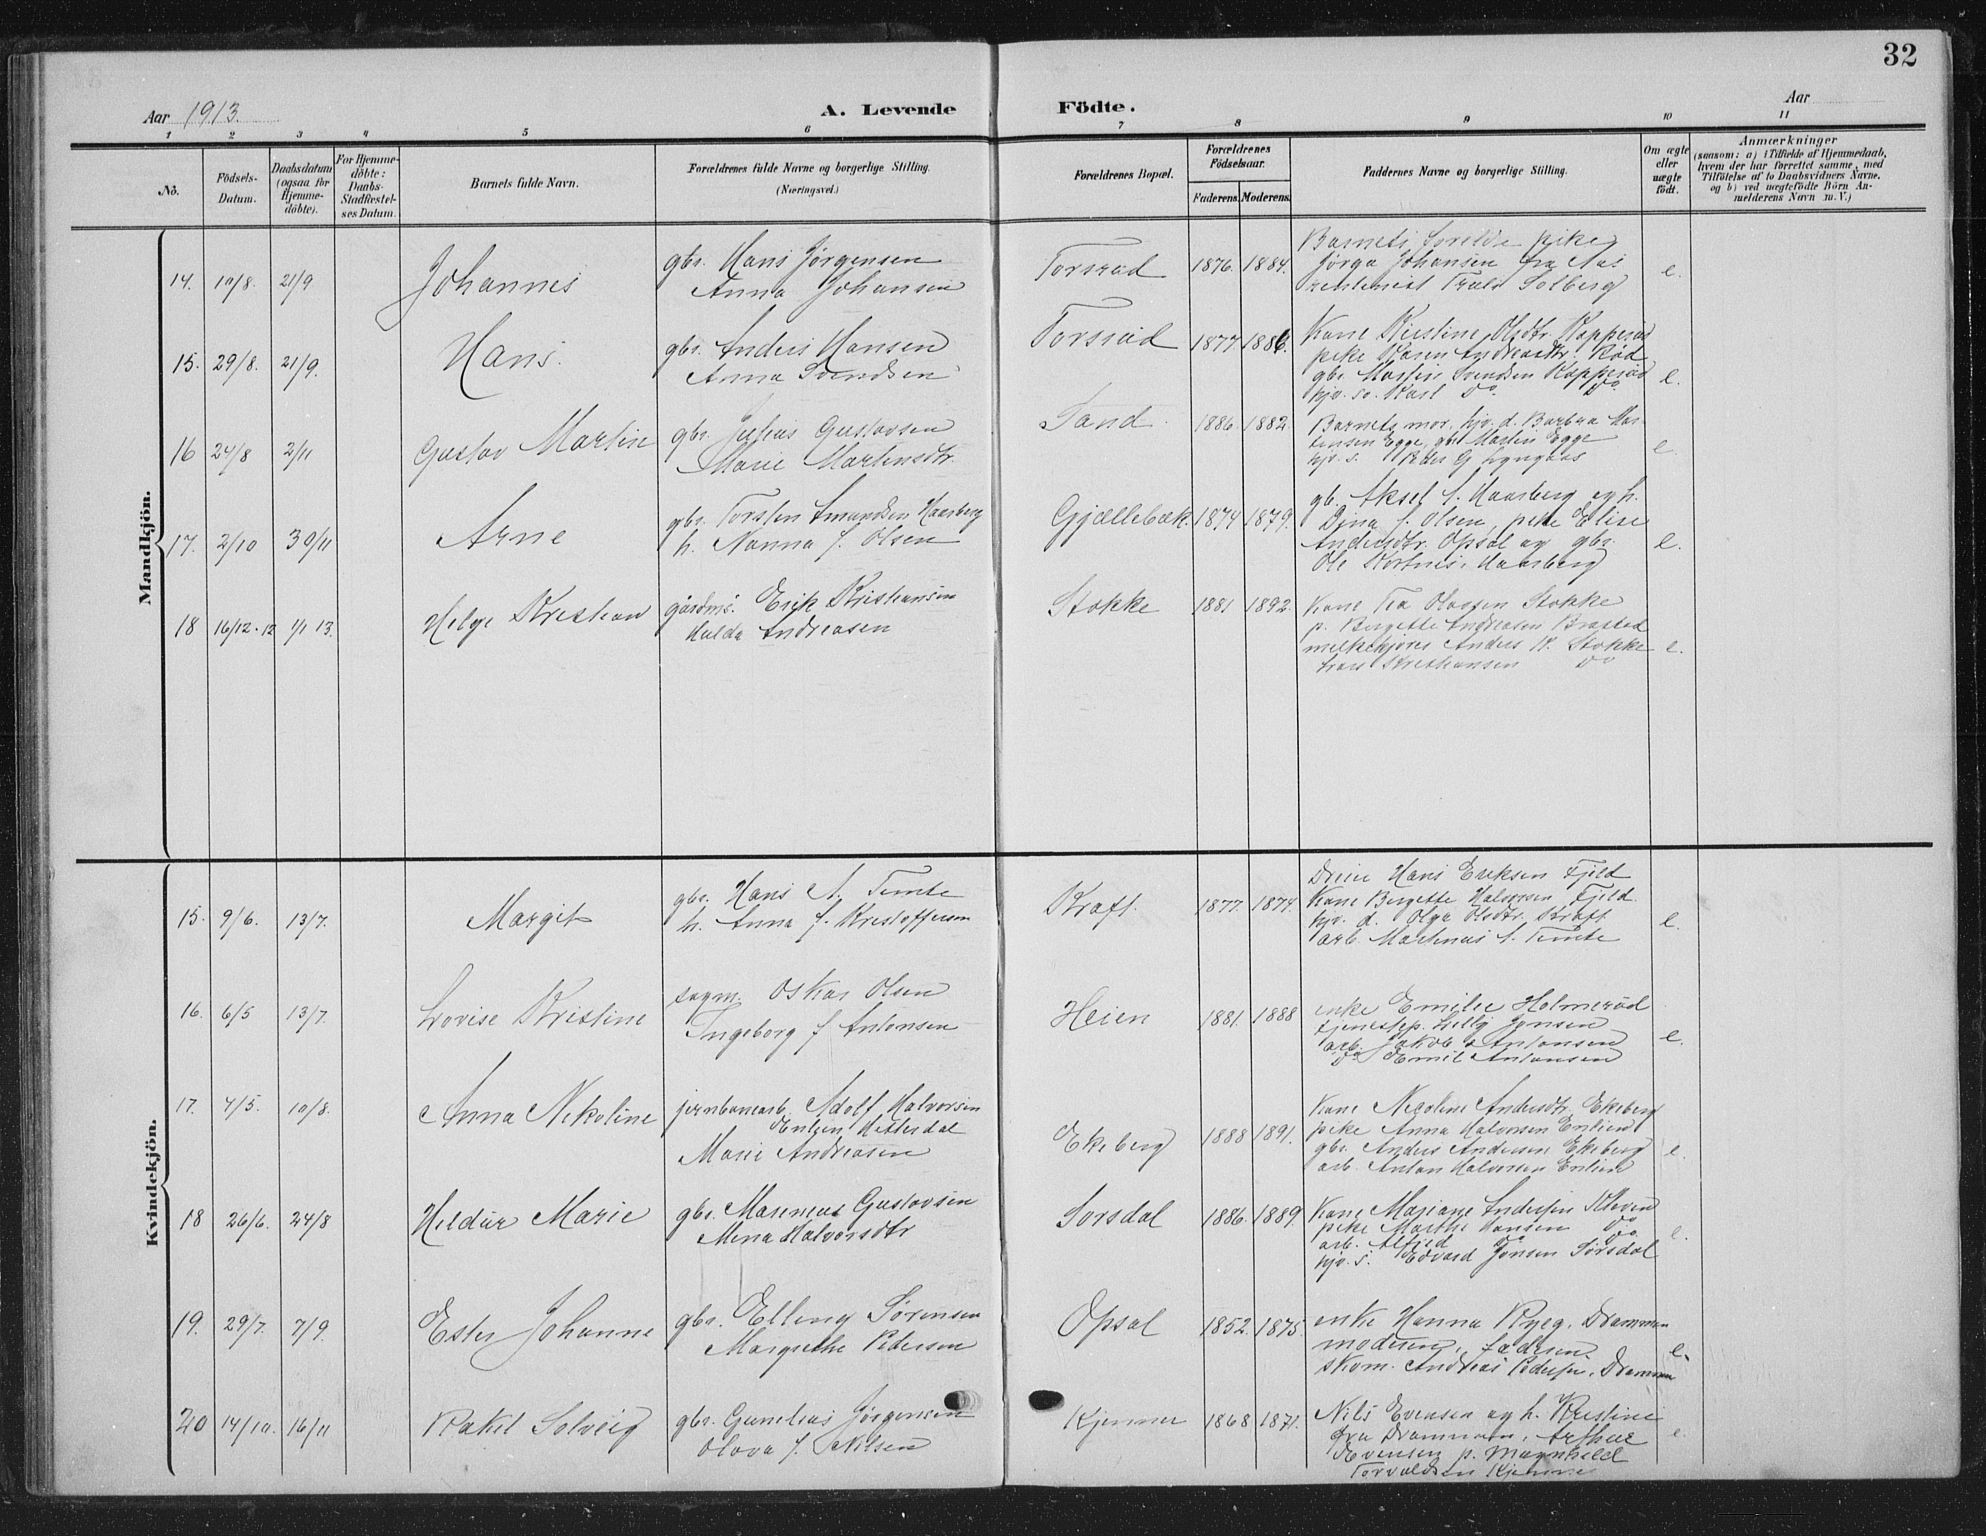 32
Aar 1913.
A. Levende Födte.
Aar
1 2 3 4 5 6 7 8 9 10 11
No.
Födsels-Datum.
Daabsdatum (ogsaa for Hjemme-döbte).
For Hjemme-döbte: Daabs-Stadfæstel-ses Datum.
Barnets fulde Navn.
Forældrenes fulde Navne og borgerlige Stilling.
(Næringsvei.)
Forældrenes Bopæl.
Forældrenes Födselsaar.
Faderens. Moderens.
Faddernes Navne og borgerlige Stilling.
Om ægte eller uægte födt.
Anmærkninger
(saasom: a) i Tilfælde af Hjemmedaab, hvem der har forrettet samme, med Tilföielse af to Daabsvidners Navne, og b) ved uægtefödte Börn An-melderens Navn m. V.)
Mandkjön.
14. 10/8. 21/9 Johannes
gbr. Hans Jørgensen
Anna Johansen
Torsrud 1876. 1884.
Barnets forelde pike
Jørga Johansen fra Aas
rentenist Truls Solberg
e.
15. 29/8. 21/9. Hans.
gbr. Anders Hansen
Anna Svendsen
Torsrud 1877 1886.
Kone Kirstine Olsdtr. Kopperud
pike Karen Andreasdtr. Rød
gbr. Martin Svendsen Kopperud
hjv. sø. Karl do do
e.
16 24/8 2/11 Gustav Martin
gbr. Julius Gustavsen
Marie Martinsdtr.
Sand. 1886. 1882.
Barnets mor. hjv. d. Barbra Mar-
tinsen Egge, gbr. Martin Egge
hjv. s. Peder G. Lyngaas
e.
17. 2/10 30/11 Arne
gbr. Torsten Amundsen Haarberg
h. Nanna f. Olsen
Gjællebæk. 1874 1879.
gb. Aksel A. Haarberg og h.
Dina f. Olsen, pike Elise
Andersdtr. Opsal og gbr.
Ole Kortnes. Haarberg
e.
18 16/12-12 1/1 13. Helge Kristian
gårdmš. Erik Kristiansen
Hulda Andreasen
Stokke 1881 1892.
Kone Tea Olassen Stokke
p. Bergette Andreasen Brasted
melkekjører Anders K. Stokke
Lars Kristiansen do
e.
Kvindekjön.
15. 9/6. 13/7. Margit
gbr. Hans A. Temte
h. Anna f. Kristoffersen
Kraft. 1877. 1874.
Dreier Hans Eriksen Fjeld
Kone Bergette Halvorsen Fjeld
hjv. d. Olga Olsdtr. Kraft
arb. Martinius A. Temte
e.
16. 6/5 13/7. Lovise Kristine
sagm. Oskar Olsen
Ingeborg f Antonsen
Heien 1881. 1888
enke Emilie Holmerud
tjenestep. Lilly Jonsen
arb. Jakob Antonsen
do Emil Antonsen
e.
17. 4/5. 10/8. Anna Nikoline
jernbanearb. Adolf Halvorsen
Enlien Hitterdal
Marie Andreasen
Ekeberg 1888 1891.
Kone Nicoline Andersdtr. Ekeberg
pike Anna Halvorsen Enlien
gbr. Anders Andersen Ekeberg
arb. Anton Halvorsen Enlien
e.
18 26/6. 24/8 Hildur Marie
gbr. Marenius Gustavsen
Mina Halvorsdtr
Sorsdal 1886. 1889.
Kone Mariane Andersen
pike Marthe Hansen do
arb. Alfred do do
hjv. s. Edvard Jensen Sørsdal
e.
19. 29/7. 7/9. Ester Johanne
gbr. Elling Sørensen
Margrethe Pedersen
Opsal 1852. 1875.
enke Hanna Ryeg. Drammen
moderen, faderen.
skom. Andreas Pedersen. Drammen
e.
20 14/10. 16/11 Rakel Solveig
gbr. Gunelius Jørgensen
Olova f. Nilsen
Kjenner 1868 1871.
Nils Evensen og h. Kristine
fra Drammen. Arthur
Evensen p. Magnhild
Torvaldsen Kjenner
e.